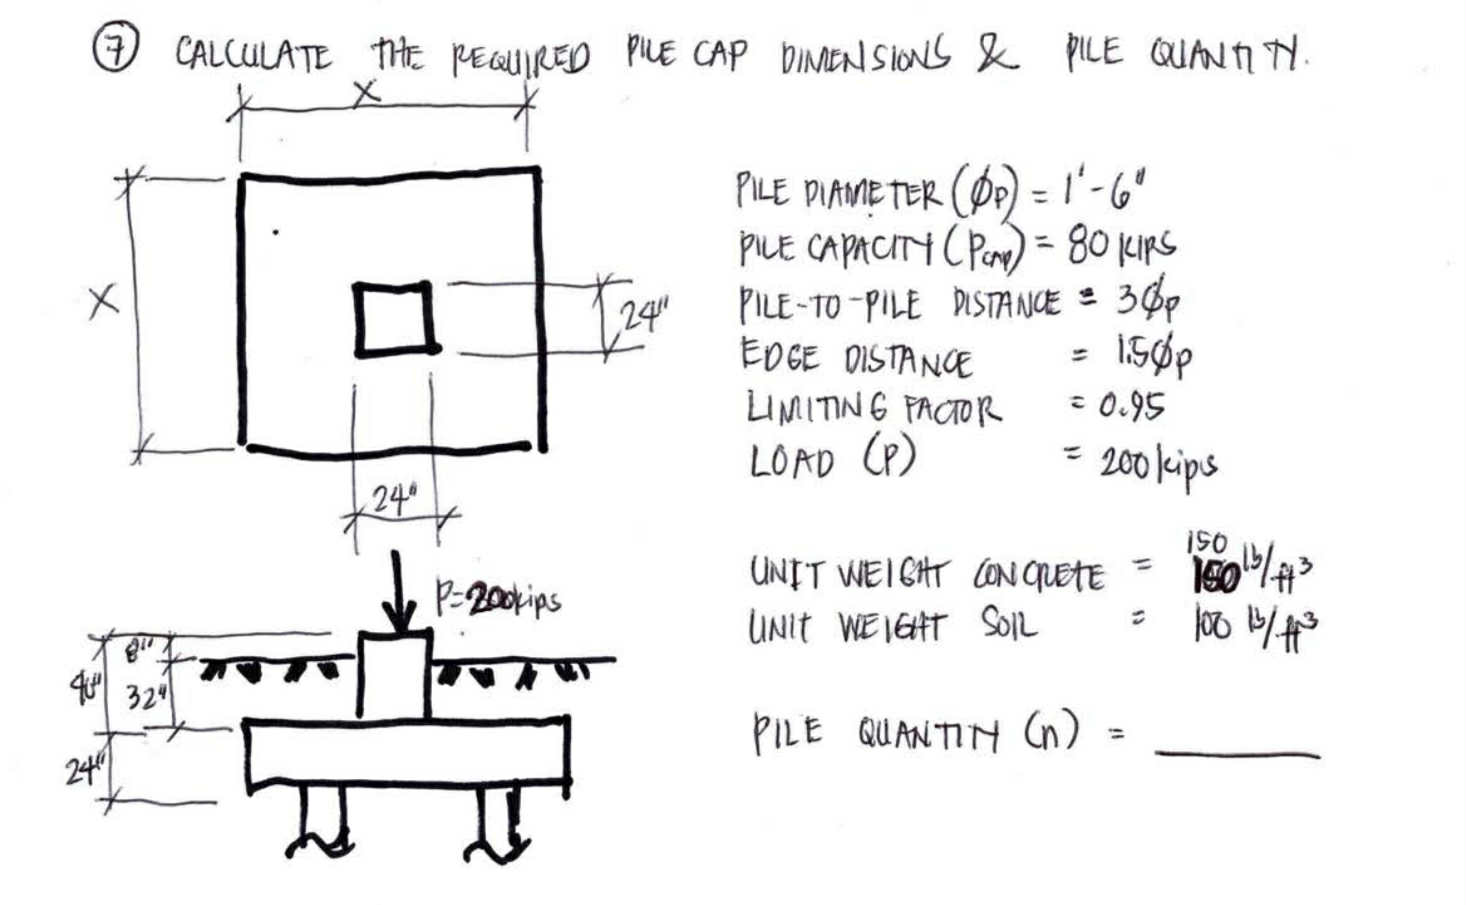 7 CALCULATE THE REQUIRED PILE CAP DIMENSIONS & PILE QUANTITY.
X
X
24"
24"
PILE DIAMETER (ØP) = 1'-6"
PILE CAPACITY (Pcap) = 80 KIPS
PILE-TO-PILE DISTANCE = 3ØP
EDGE DISTANCE = 1.5ØP
LIMITING FACTOR = 0.95
LOAD (P) = 200 kips
P=200kips
8"
40"
32"
24"
150
UNIT WEIGHT CONCRETE = 150 lb/ft³
UNIT WEIGHT SOIL = 100 lb/ft³
PILE QUANTITY (n) =